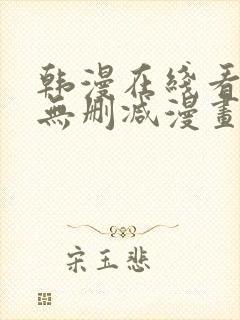 韩漫在线看
無删减漫畫
宋玉悲